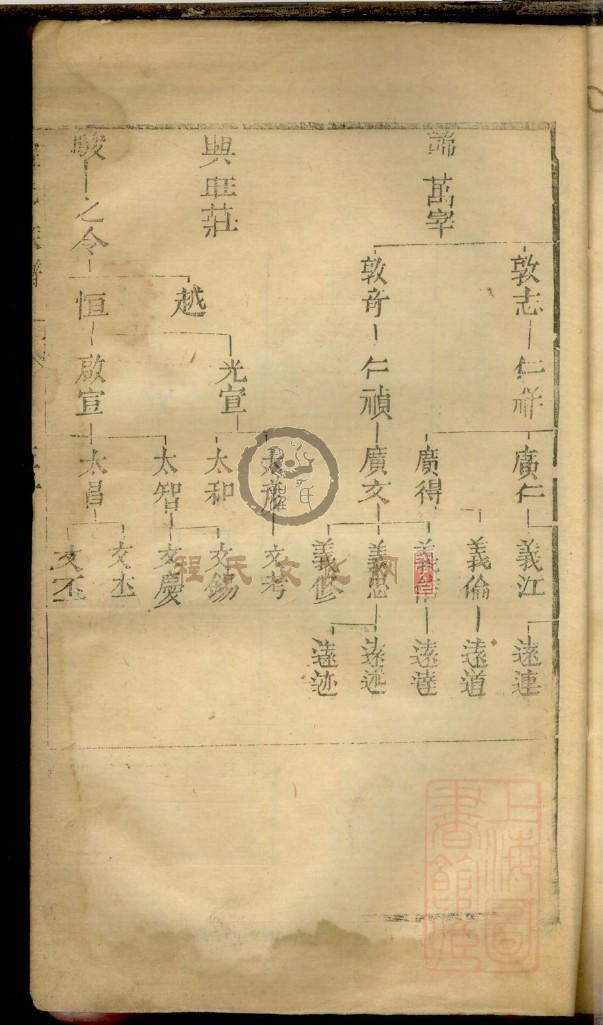 萬宰
敦志
仁祥
廣仁
義江
遠連
義倫
遠道
廣得
遠達
敦奇
仁禎
廣文
義思
遠述
義修
遠迹
興旺莊
越
光宣
文考
太和
太智
文錫
文慶
駿
之令
恒
啟宣
太昌
文丕
文丕
程氏文化网
上海圖
書館藏